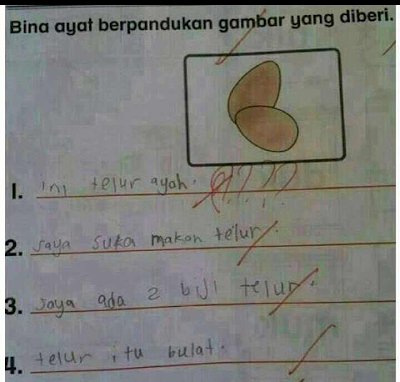 Bina ayat berpandukan gambar yang diberi.
1. ini telur ayah. ????
2. saya suka makan telur.
3. saya ada 2 biji telur.
4. telur itu bulat.